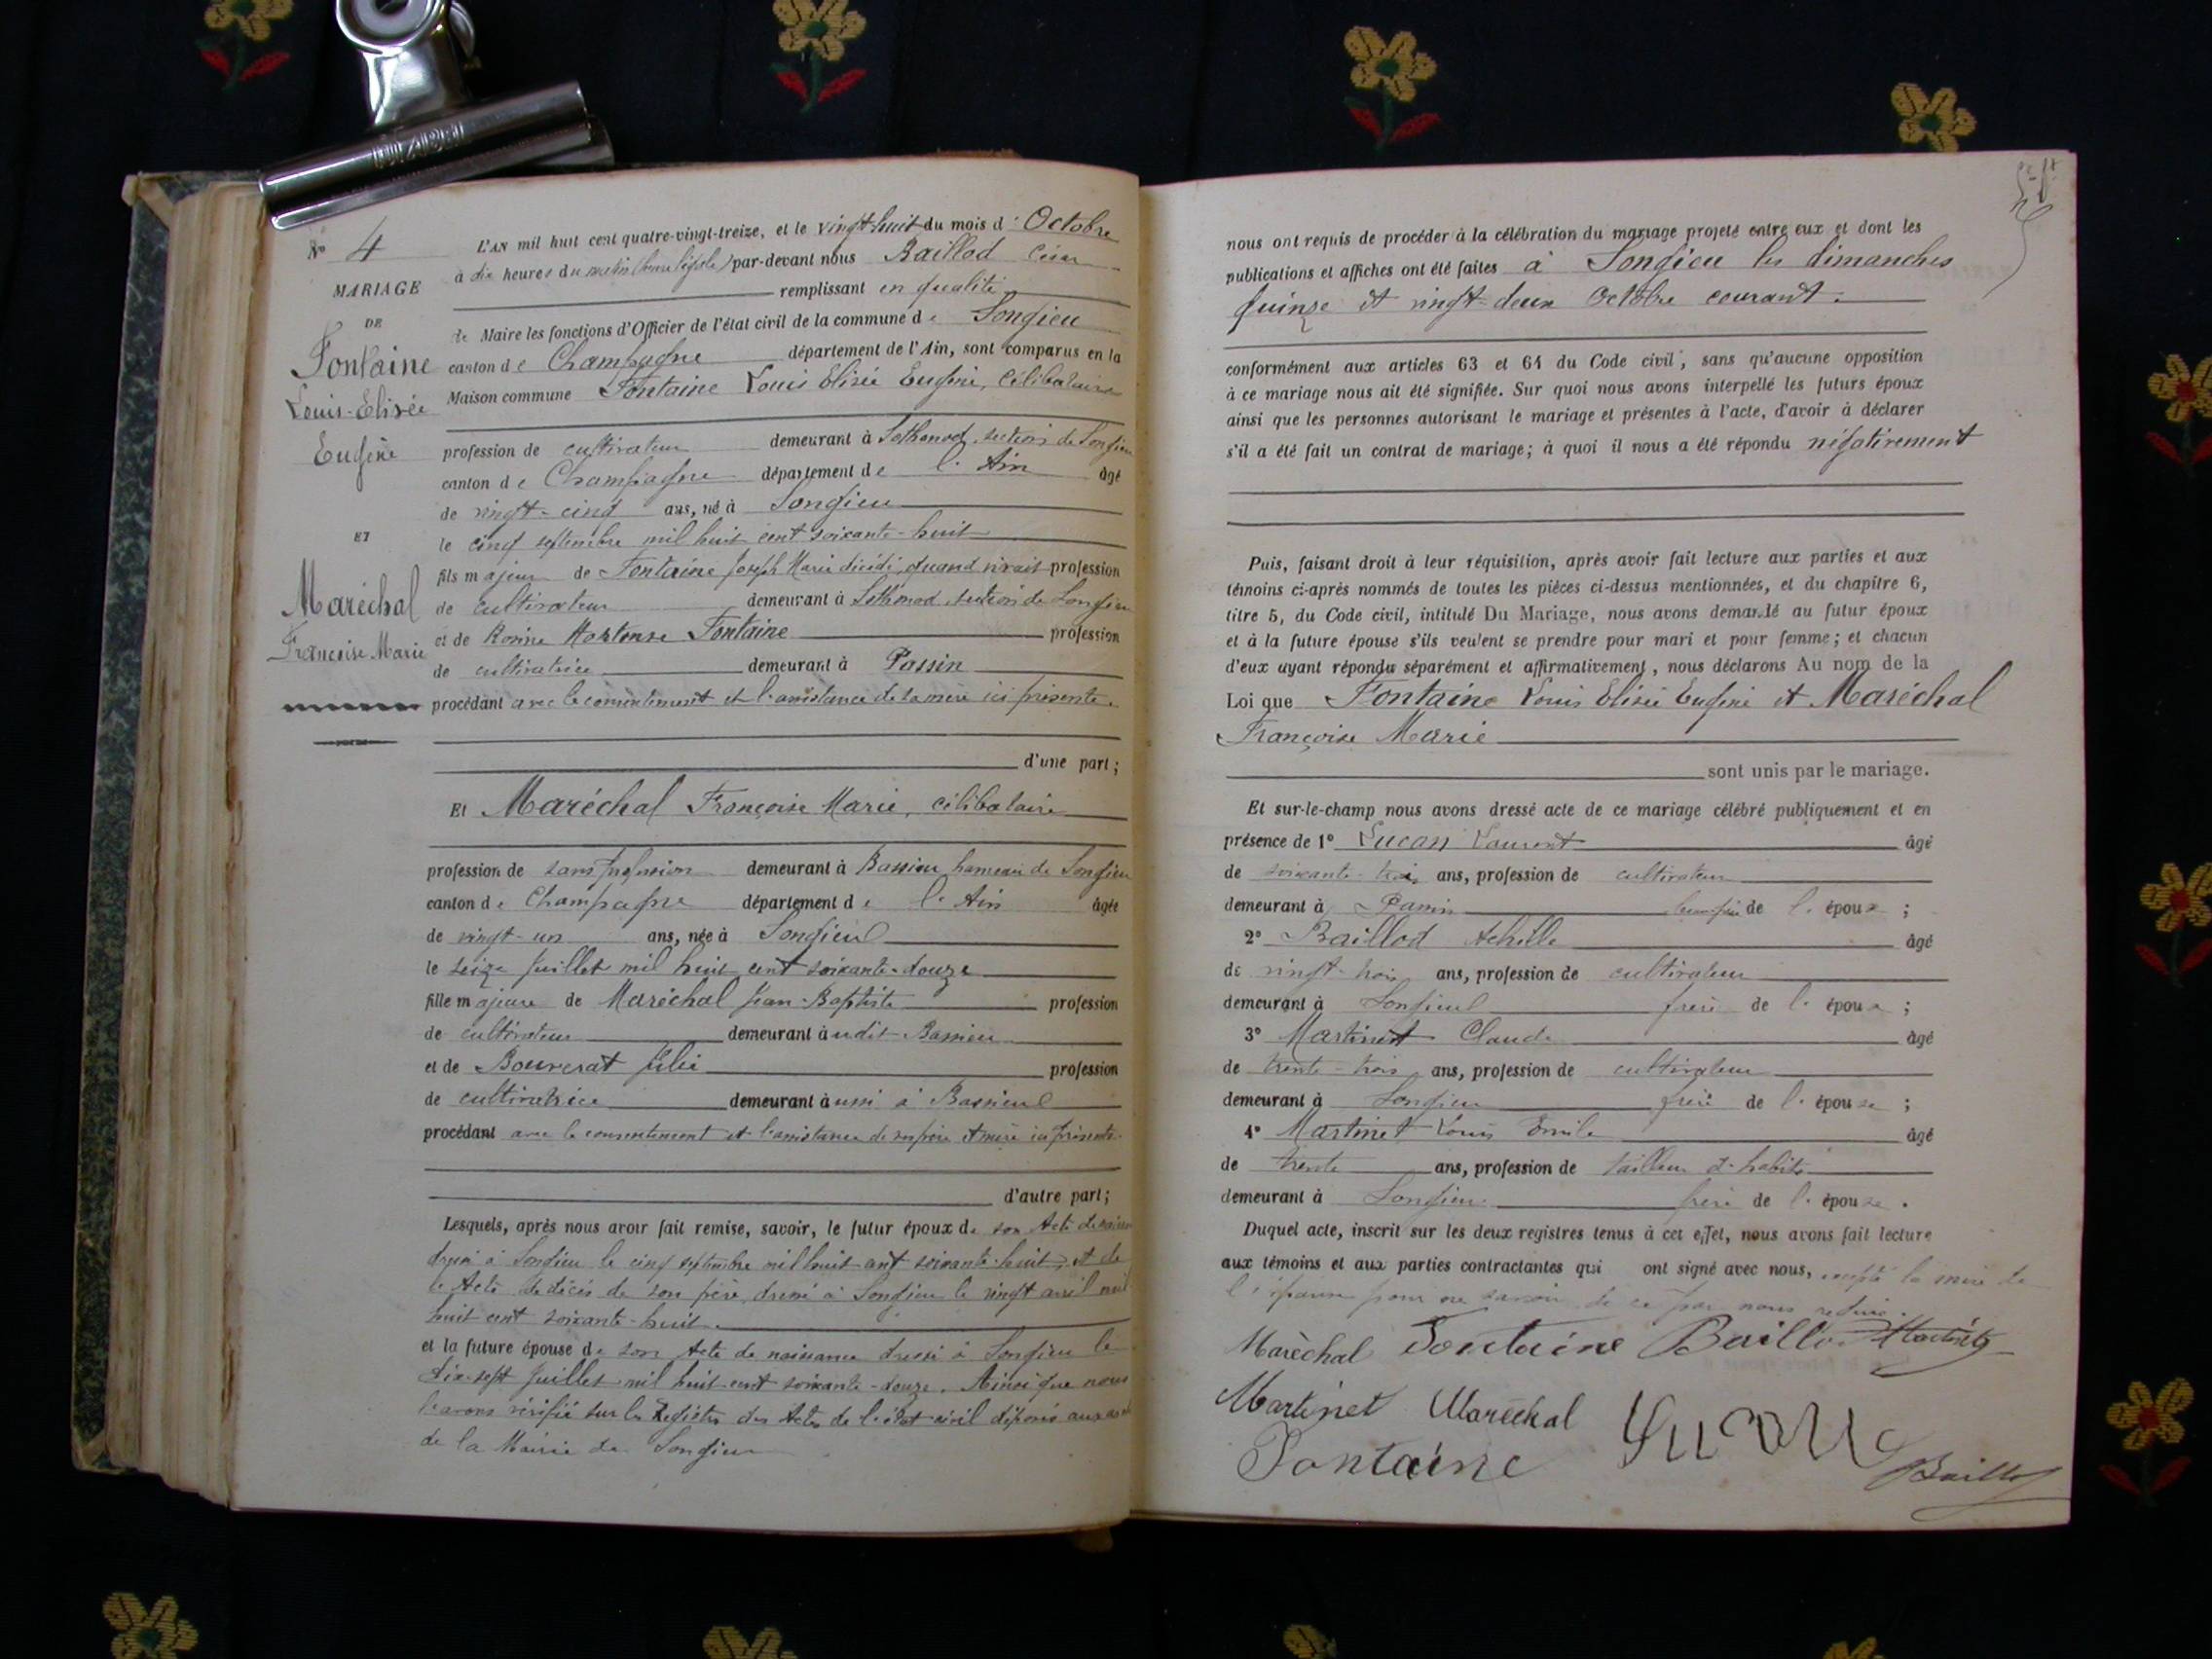 № 4
MARIAGE
DE
Fontaine
Louis-Elisée
Eugène
ET
Maréchal
Françoise Marie
L'AN mil huit cent quatre-vingt-treize, et le vingt-huit du mois d' Octobre
à dix heures du matin (heure légale) par-devant nous Baillod César
remplissant en qualité
de Maire les fonctions d'Officier de l'état civil de la commune de Songieu
canton de Champagne département de l'Ain, sont comparus en la
Maison commune Fontaine Louis Elisée Eugène, célibataire
profession de cultivateur demeurant à Sothonod section de Songieu
canton de Champagne département de l'Ain âgé
de vingt-cinq ans, né à Songieu
le cinq septembre mil huit cent soixante-huit
fils majeur de Fontaine Joseph Marie décédé, quand vivait profession
de cultivateur demeurant à Sothonod section de Songieu
et de Rosine Hortense Fontaine profession
de cultivatrice demeurant à Passin
procédant avec le consentement et l'assistance de sa mère ici présente.
d'une part;
Et Maréchal Françoise Marie, célibataire
profession de sans profession demeurant à Bassieu hameau de Songieu
canton de Champagne département de l'Ain âgée
de vingt-un ans, née à Songieu
le seize Juillet mil huit cent soixante-douze
fille majeure de Maréchal Jean-Baptiste profession
de cultivateur demeurant à udit Bassieu
et de Bouverat Julie profession
de cultivatrice demeurant à ussi à Bassieu
procédant avec le consentement et l'assistance de ses père et mère ici présents.
d'autre part;
Lesquels, après nous avoir fait remise, savoir, le futur époux de son Acte de naissance
dressé à Songieu le cinq septembre mil huit cent soixante-huit, et de
l'Acte de décès de son père, dressé à Songieu le vingt avril mil
huit cent soixante-huit.
et la future épouse de son Acte de naissance dressé à Songieu le
dix-sept Juillet mil huit cent soixante-douze. Ainsi que nous
l'avons vérifié sur les Registres des Actes de l'état civil déposés aux
de la Mairie de Songieu
nous ont requis de procéder à la célébration du mariage projeté entre eux et dont les
publications et affiches ont été faites à Songieu les dimanches
quinze et vingt-deux Octobre courant.
conformément aux articles 63 et 64 du Code civil, sans qu'aucune opposition
à ce mariage nous ait été signifiée. Sur quoi nous avons interpellé les futurs époux
ainsi que les personnes autorisant le mariage et présentes à l'acte, d'avoir à déclarer
s'il a été fait un contrat de mariage; à quoi il nous a été répondu négativement
Puis, faisant droit à leur réquisition, après avoir fait lecture aux parties et aux
témoins ci-après nommés de toutes les pièces ci-dessus mentionnées, et du chapitre 6,
titre 5, du Code civil, intitulé Du Mariage, nous avons demandé au futur époux
et à la future épouse s'ils veulent se prendre pour mari et pour femme; et chacun
d'eux ayant répondu séparément et affirmativement, nous déclarons Au nom de la
Loi que Fontaine Louis Elisée Eugène et Maréchal
Françoise Marie
sont unis par le mariage.
Et sur-le-champ nous avons dressé acte de ce mariage célébré publiquement et en
présence de 1° Lucan Laurent âgé
de soixante-trois ans, profession de cultivateur
demeurant à beau-père de l'époux;
2° Baillod Achille âgé
de vingt-trois ans, profession de cultivateur
demeurant à Songieu frère de l'épou ;
3° Martinet Claude âgé
de trente-trois ans, profession de cultivateur
demeurant à Songieu frère de l'épouse;
4° Martinet Louis Emile âgé
de trente ans, profession de tailleur d'habits
demeurant à Songieu frère de l'épouse.
Duquel acte, inscrit sur les deux registres tenus à cet effet, nous avons fait lecture
aux témoins et aux parties contractantes qui ont signé avec nous, excepté la mère de
l'épouse pour ne savoir de ce par nous requise.
Maréchal Fontaine Baillod Martinet
Martinet Maréchal Lucan
Fontaine Baillod